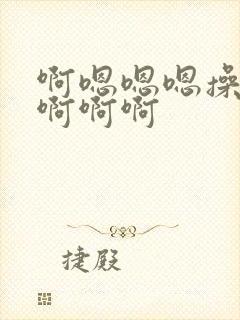 啊嗯嗯嗯操
啊啊啊
捷殿